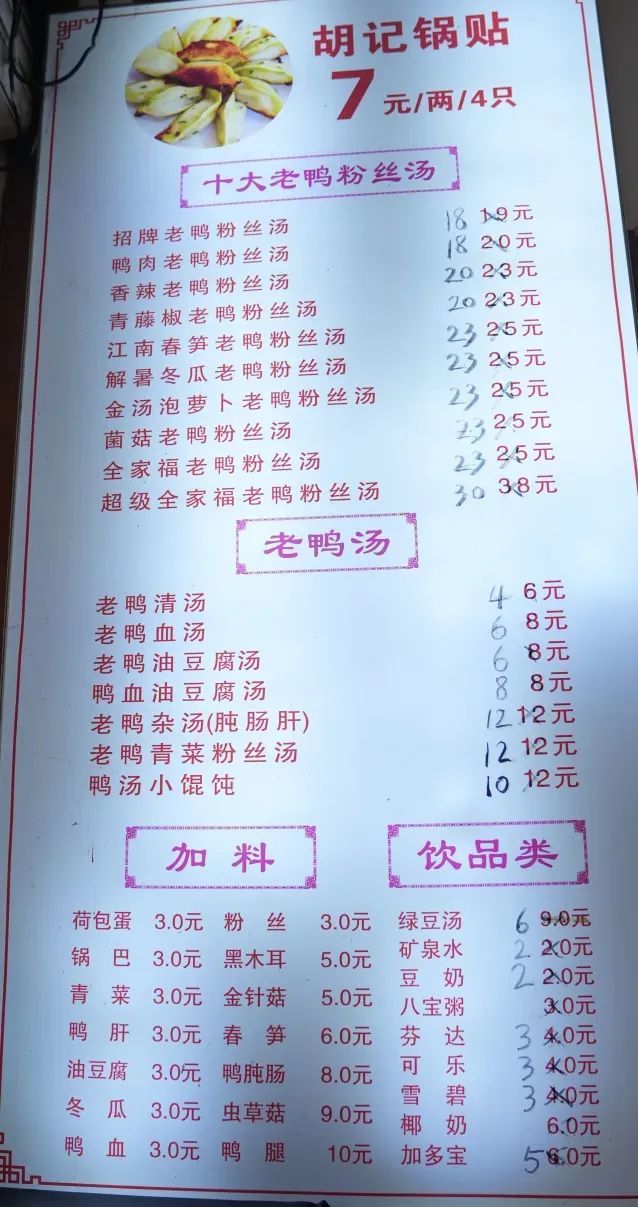 胡记锅贴
7元/两/4只
十大老鸭粉丝汤
招牌老鸭粉丝汤 18 19元
鸭肉老鸭粉丝汤 18 20元
香辣老鸭粉丝汤 20 23元
青藤椒老鸭粉丝汤 20 23元
江南春笋老鸭粉丝汤 23 25元
解暑冬瓜老鸭粉丝汤 23 25元
金汤泡萝卜老鸭粉丝汤 23 25元
菌菇老鸭粉丝汤 23 25元
全家福老鸭粉丝汤 23 25元
超级全家福老鸭粉丝汤 30 38元
老鸭汤
老鸭清汤 4 6元
老鸭血汤 6 8元
老鸭油豆腐汤 6 8元
鸭血油豆腐汤 8 8元
老鸭杂汤(肫肠肝) 12 12元
老鸭青菜粉丝汤 12 12元
鸭汤小馄饨 10 12元
加料
荷包蛋 3.0元 粉丝 3.0元
锅巴 3.0元 黑木耳 5.0元
青菜 3.0元 金针菇 5.0元
鸭肝 3.0元 春笋 6.0元
油豆腐 3.0元 鸭肫肠 8.0元
冬瓜 3.0元 虫草菇 9.0元
鸭血 3.0元 鸭腿 10元
饮品类
绿豆汤 6 9.0元
矿泉水 2 2.0元
豆奶 2 2.0元
八宝粥 3.0元
芬达 3 4.0元
可乐 3 4.0元
雪碧 3 4.0元
椰奶 6.0元
加多宝 5 6.0元